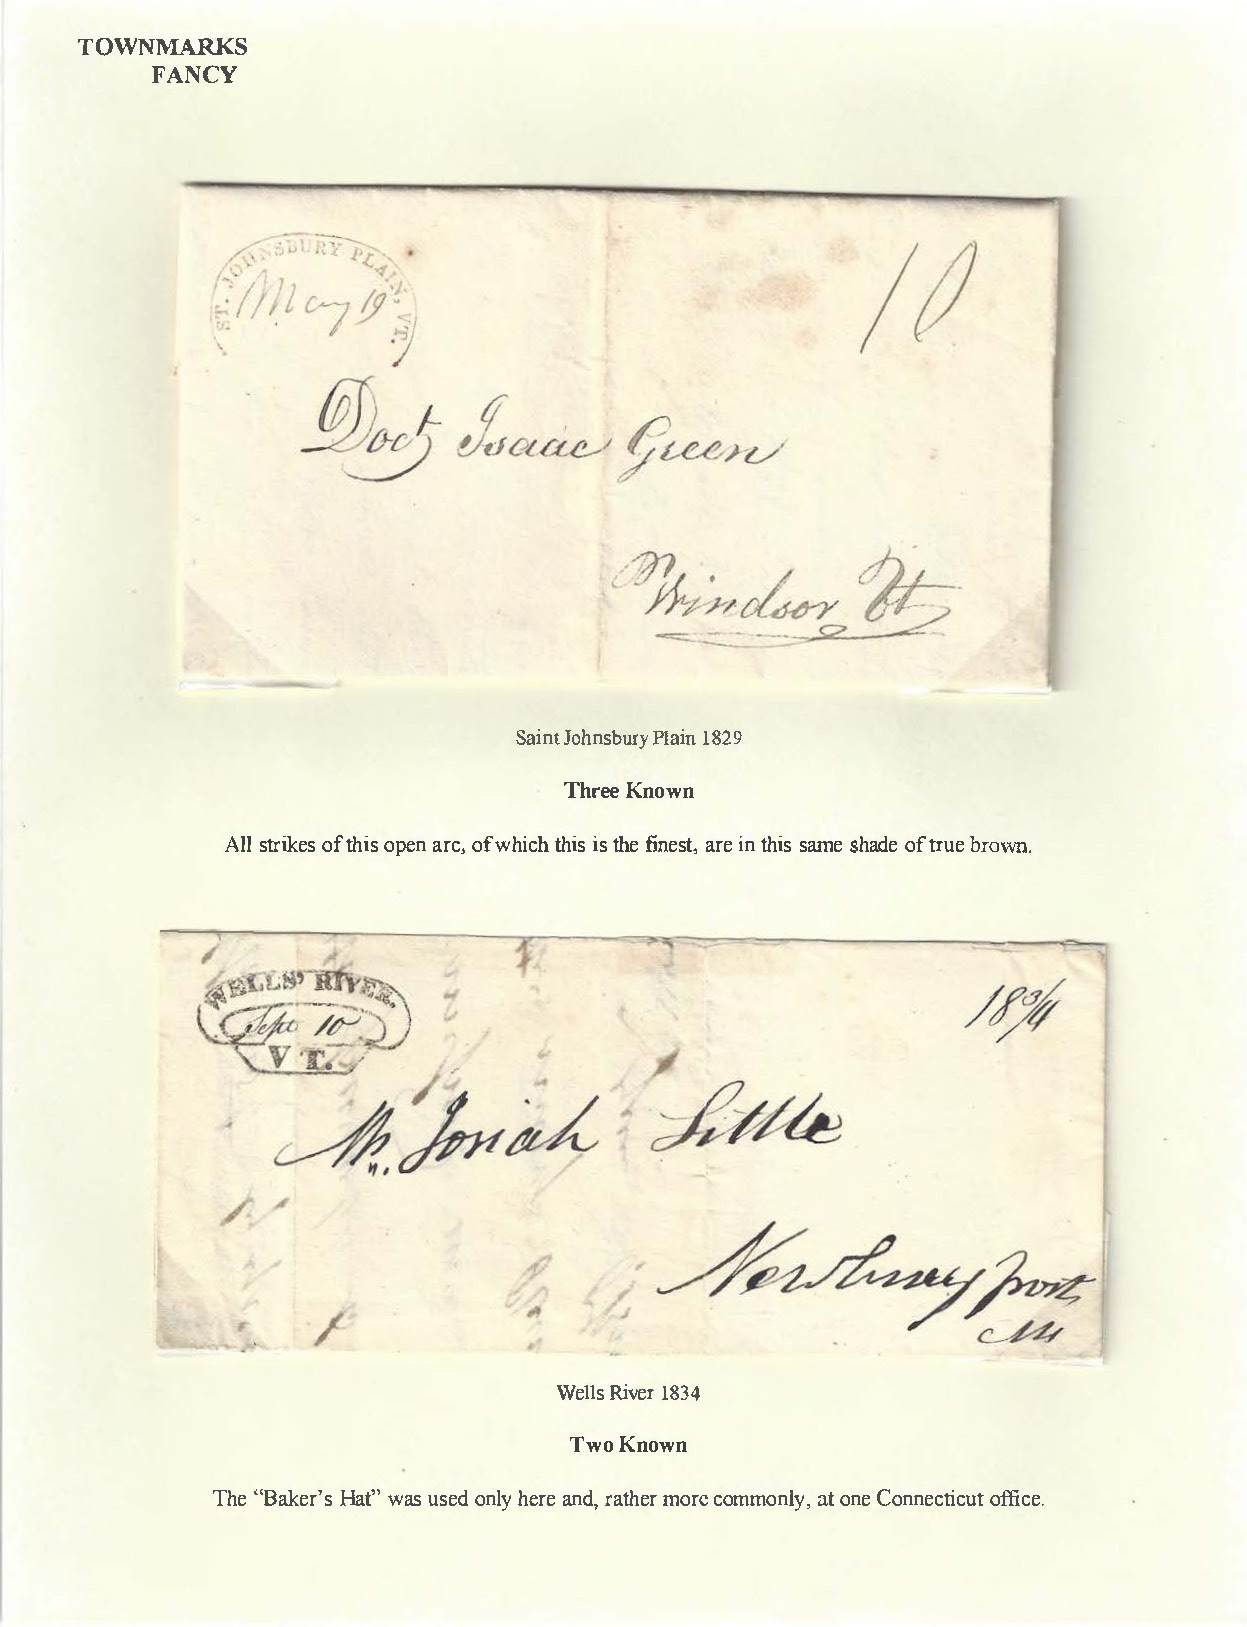 TOWNMARKS
FANCY
ST. JOHNSBURY PLAIN, VT.
May 19
10
Doct Isaac Green
Windsor Vt
Saint Johnsbury Plain 1829
Three Known
All strikes of this open arc, of which this is the finest, are in this same shade of true brown.
WELLS' RIVER.
Sept 10
VT.
18 3/4
Mr. Josiah Little
Newburyport
Ms
Wells River 1834
Two Known
The “Baker’s Hat” was used only here and, rather more commonly, at one Connecticut office.